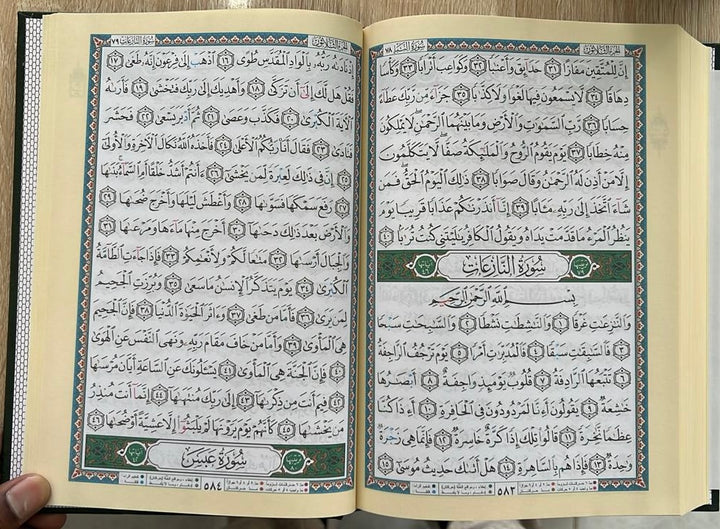 الجزء الثلاثون سورة النبإ ٧٨
إِنَّ لِلْمُتَّقِينَ مَفَازًا ٣١ حَدَآئِقَ وَأَعْنَٰبًا ٣٢ وَكَوَاعِبَ أَتْرَابًا ٣٣ وَكَأْسًا
دِهَاقًا ٣٤ لَّا يَسْمَعُونَ فِيهَا لَغْوًا وَلَا كِذَّٰبًا ٣٥ جَزَآءً مِّن رَّبِّكَ عَطَآءً
حِسَابًا ٣٦ رَّبِّ ٱلسَّمَٰوَٰتِ وَٱلْأَرْضِ وَمَا بَيْنَهُمَا ٱلرَّحْمَٰنِ لَا يَمْلِكُونَ
مِنْهُ خِطَابًا ٣٧ يَوْمَ يَقُومُ ٱلرُّوحُ وَٱلْمَلَٰٓئِكَةُ صَفًّا لَّا يَتَكَلَّمُونَ
إِلَّا مَنْ أَذِنَ لَهُ ٱلرَّحْمَٰنُ وَقَالَ صَوَابًا ٣٨ ذَٰلِكَ ٱلْيَوْمُ ٱلْحَقُّ فَمَن
شَآءَ ٱتَّخَذَ إِلَىٰ رَبِّهِۦ مَـَٔابًا ٣٩ إِنَّآ أَنذَرْنَٰكُمْ عَذَابًا قَرِيبًا يَوْمَ
يَنظُرُ ٱلْمَرْءُ مَا قَدَّمَتْ يَدَاهُ وَيَقُولُ ٱلْكَافِرُ يَٰلَيْتَنِى كُنتُ تُرَٰبًا ٤٠
سُورَةُ النَّازِعَاتِ
بِسْمِ ٱللَّهِ ٱلرَّحْمَٰنِ ٱلرَّحِيمِ
وَٱلنَّٰزِعَٰتِ غَرْقًا ١ وَٱلنَّٰشِطَٰتِ نَشْطًا ٢ وَٱلسَّٰبِحَٰتِ سَبْحًا
٣ فَٱلسَّٰبِقَٰتِ سَبْقًا ٤ فَٱلْمُدَبِّرَٰتِ أَمْرًا ٥ يَوْمَ تَرْجُفُ ٱلرَّاجِفَةُ
٦ تَتْبَعُهَا ٱلرَّادِفَةُ ٧ قُلُوبٌ يَوْمَئِذٍ وَاجِفَةٌ ٨ أَبْصَٰرُهَا
خَٰشِعَةٌ ٩ يَقُولُونَ أَءِنَّا لَمَرْدُودُونَ فِى ٱلْحَافِرَةِ ١٠ أَءِذَا كُنَّا
عِظَٰمًا نَّخِرَةً ١١ قَالُوا۟ تِلْكَ إِذًا كَرَّةٌ خَاسِرَةٌ ١٢ فَإِنَّمَا هِىَ زَجْرَةٌ
وَٰحِدَةٌ ١٣ فَإِذَا هُم بِٱلسَّاهِرَةِ ١٤ هَلْ أَتَىٰكَ حَدِيثُ مُوسَىٰٓ ١٥
٥٨٣
الجزء الثلاثون سورة النازعات ٧٩
إِذْ نَادَىٰهُ رَبُّهُۥ بِٱلْوَادِ ٱلْمُقَدَّسِ طُوًى ١٦ ٱذْهَبْ إِلَىٰ فِرْعَوْنَ إِنَّهُۥ طَغَىٰ ١٧
فَقُلْ هَل لَّكَ إِلَىٰٓ أَن تَزَكَّىٰ ١٨ وَأَهْدِيَكَ إِلَىٰ رَبِّكَ فَتَخْشَىٰ ١٩ فَأَرَىٰهُ
ٱلْـَٔايَةَ ٱلْكُبْرَىٰ ٢٠ فَكَذَّبَ وَعَصَىٰ ٢١ ثُمَّ أَدْبَرَ يَسْعَىٰ ٢٢ فَحَشَرَ
فَنَادَىٰ ٢٣ فَقَالَ أَنَا۠ رَبُّكُمُ ٱلْأَعْلَىٰ ٢٤ فَأَخَذَهُ ٱللَّهُ نَكَالَ ٱلْـَٔاخِرَةِ وَٱلْأُولَىٰٓ
٢٥ إِنَّ فِى ذَٰلِكَ لَعِبْرَةً لِّمَن يَخْشَىٰٓ ٢٦ ءَأَنتُمْ أَشَدُّ خَلْقًا أَمِ ٱلسَّمَآءُ بَنَىٰهَا
٢٧ رَفَعَ سَمْكَهَا فَسَوَّىٰهَا ٢٨ وَأَغْطَشَ لَيْلَهَا وَأَخْرَجَ ضُحَىٰهَا ٢٩
وَٱلْأَرْضَ بَعْدَ ذَٰلِكَ دَحَىٰهَآ ٣٠ أَخْرَجَ مِنْهَا مَآءَهَا وَمَرْعَىٰهَا ٣١
وَٱلْجِبَالَ أَرْسَىٰهَا ٣٢ مَتَٰعًا لَّكُمْ وَلِأَنْعَٰمِكُمْ ٣٣ فَإِذَا جَآءَتِ ٱلطَّآمَّةُ
ٱلْكُبْرَىٰ ٣٤ يَوْمَ يَتَذَكَّرُ ٱلْإِنسَٰنُ مَا سَعَىٰ ٣٥ وَبُرِّزَتِ ٱلْجَحِيمُ
لِمَن يَرَىٰ ٣٦ فَأَمَّا مَن طَغَىٰ ٣٧ وَءَاثَرَ ٱلْحَيَوٰةَ ٱلدُّنْيَا ٣٨ فَإِنَّ ٱلْجَحِيمَ
هِىَ ٱلْمَأْوَىٰ ٣٩ وَأَمَّا مَنْ خَافَ مَقَامَ رَبِّهِۦ وَنَهَى ٱلنَّفْسَ عَنِ ٱلْهَوَىٰ
٤٠ فَإِنَّ ٱلْجَنَّةَ هِىَ ٱلْمَأْوَىٰ ٤١ يَسْـَٔلُونَكَ عَنِ ٱلسَّاعَةِ أَيَّانَ مُرْسَىٰهَا
٤٢ فِيمَ أَنتَ مِن ذِكْرَىٰهَآ ٤٣ إِلَىٰ رَبِّكَ مُنتَهَىٰهَآ ٤٤ إِنَّمَآ أَنتَ مُنذِرُ
مَن يَخْشَىٰهَا ٤٥ كَأَنَّهُمْ يَوْمَ يَرَوْنَهَا لَمْ يَلْبَثُوٓا۟ إِلَّا عَشِيَّةً أَوْ ضُحَىٰهَا ٤٦
سُورَةُ عَبَسَ
٥٨٤